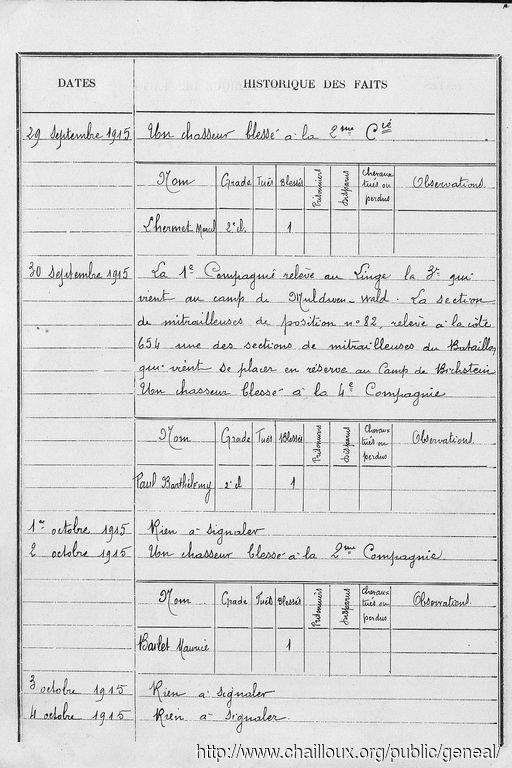 DATES HISTORIQUE DES FAITS
29 septembre 1915 Un chasseur blessé à la 2me Cie
Nom Grade Tués Blessés Prisonniers Disparus Chevaux tués ou perdus Observations.
Lhermet Marcel 2e cl. 1
30 septembre 1915 La 1e Compagnie relève au Linge la 3e qui
vient au camp de Muldwen-Wald. La section
de mitrailleuses de position n°82, relève à la côte
654 une des sections de mitrailleuses du Bataillon,
qui vient se placer en réserve au Camp de Bichstein
Un chasseur blessé à la 4e Compagnie
Nom Grade Tués Blessés Prisonniers Disparus Chevaux tués ou perdus Observations.
Paul Barthélemy 2e cl 1
1er octobre 1915 Rien à signaler
2 octobre 1915 Un chasseur blessé à la 2me Compagnie
Nom Grade Tués Blessés Prisonniers Disparus Chevaux tués ou perdus Observations.
Barlet Maurice 1
3 octobre 1915 Rien à signaler
4 octobre 1915 Rien à signaler.
http://www.chailloux.org/public/geneal/